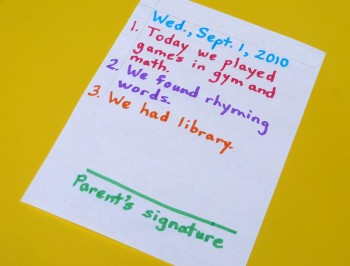 Wed., Sept. 1, 2010
1. Today we played
games in gym and
math.
2. We found rhyming
words.
3. We had library.
Parent's signature